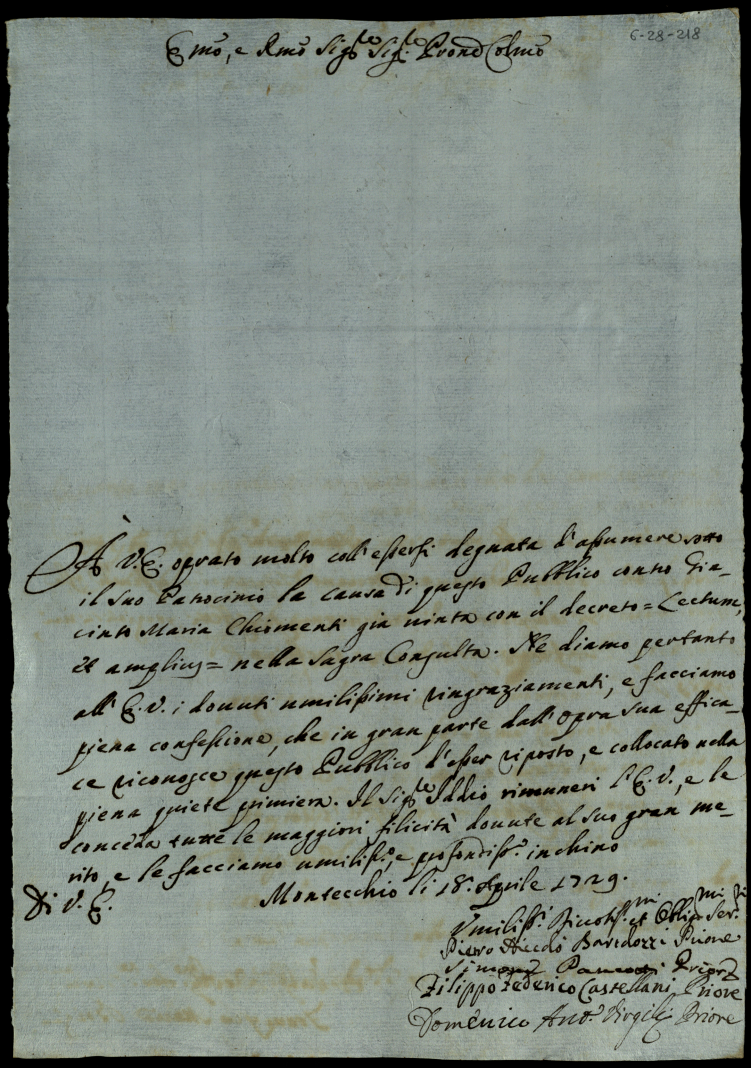 6-28-218
Emo, e Rmo Sigre Sigre Prone Colmo
À V.E. oprato molto coll'essersi degnata d'assumere sotto
il suo Patrocinio la causa di questo Pubblico contro Gia-
cinto Maria Chiomenti già vinta con il decreto = Lectum,
et amplius = nella Sagra Consulta. Ne diamo pertanto
all'E.V. i dovuti umilissimi ringraziamenti, e facciamo
piena confessione, che in gran parte dall'opra sua effica-
ce riconosce questo Pubblico d'esser riposto, e collocato nella
piena quiete primiera. Il Sigre Iddio rimuneri l'E.V., e le
conceda tutte le maggiori felicità dovute al suo gran me-
rito, e le facciamo umiliss.o, e profondiss.o inchino
Di V.E. Montecchio li 18. Aprile 1729.
Umiliss.i Divotiss.mi et Obblig.mi Ser.ri
Piero Priore
Simone Priore
Filippo Federico Castellani Priore
Domenico Ant.o Virgilj Priore